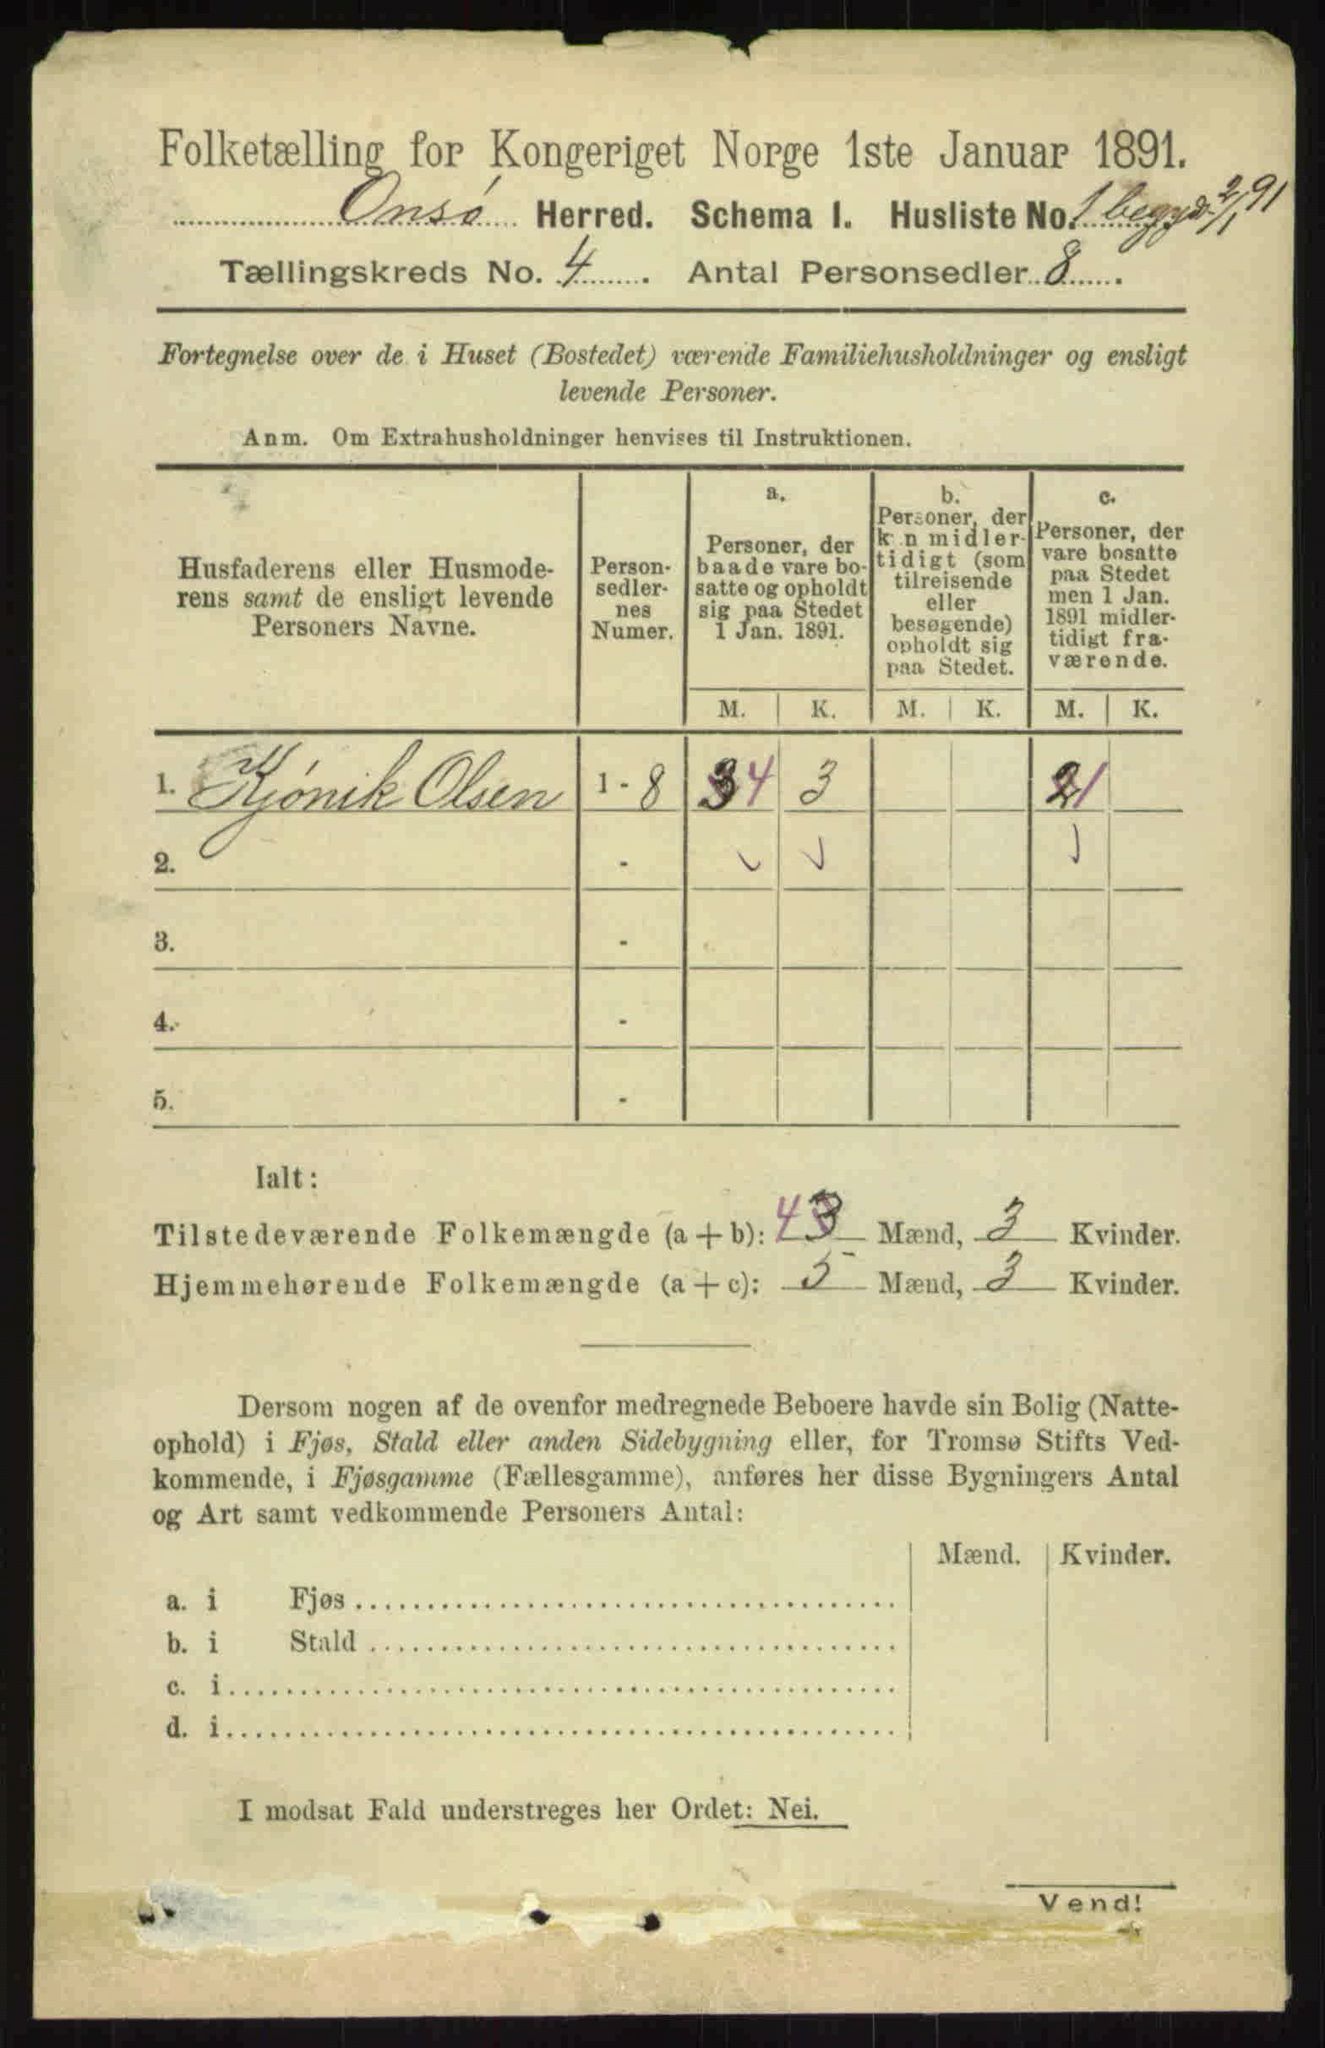 Folketælling for Kongeriget Norge 1ste Januar 1891.
Onsø Herred. Schema 1. Husliste No. 1 2/1 91
Tællingskreds No. 4. Antal Personsedler 8.
Fortegnelse over de i Huset (Bostedet) værende Familiehusholdninger og ensligt
levende Personer.
Anm. Om Extrahusholdninger henvises til Instruktionen.
Husfaderens eller Husmode-
rens samt de ensligt levende
Personers Navne.
Person-
sedler-
nes
Numer.
a.
Personer, der
baade vare bo-
satte og opholdt
sig paa Stedet
1 Jan. 1891.
b.
Personer, der
kun midler-
tidigt (som
tilreisende
eller
besøgende)
opholdt sig
paa Stedet.
c.
Personer, der
vare bosatte
paa Stedet
men 1 Jan.
1891 midler-
tidigt fra-
værende.
M. K. M. K. M. K.
1. Kjønik Olsen 1 - 8 3 4 3 2 1
2. -
3. -
4. -
5. -
Ialt:
Tilstedeværende Folkemængde (a + b): 4 3 Mænd, 3 Kvinder.
Hjemmehørende Folkemængde (a + c): 5 Mænd, 3 Kvinder.
Dersom nogen af de ovenfor medregnede Beboere havde sin Bolig (Natte-
ophold) i Fjøs, Stald eller anden Sidebygning eller, for Tromsø Stifts Ved-
kommende, i Fjøsgamme (Fællesgamme), anføres her disse Bygningers Antal
og Art samt vedkommende Personers Antal:
Mænd. Kvinder.
a. i Fjøs
b. i Stald
c. i
d. i
I modsat Fald understreges her Ordet: Nei.
Vend!